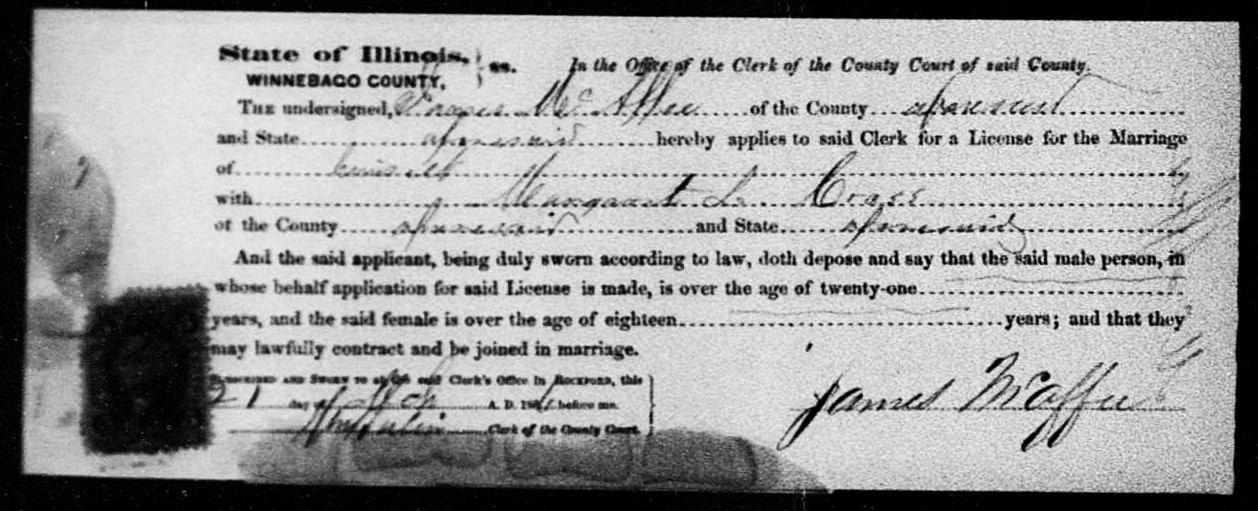 State of Illinois, } ss. In the Office of the Clerk of the County Court of said County.
WINNEBAGO COUNTY,
THE undersigned, James McAffee of the County aforesaid
and State aforesaid hereby applies to said Clerk for a License for the Marriage
of himself
with Margaret
of the County aforesaid and State aforesaid
And the said applicant, being duly sworn according to law, doth depose and say that the said male person, in
whose behalf application for said License is made, is over the age of twenty-one
years, and the said female is over the age of eighteen years; and that they
may lawfully contract and be joined in marriage.
SUBSCRIBED AND SWORN TO at the said Clerk's Office in ROCKFORD, this
21 day of A. D. 186 before me.
Clerk of the County Court.
James McAffee